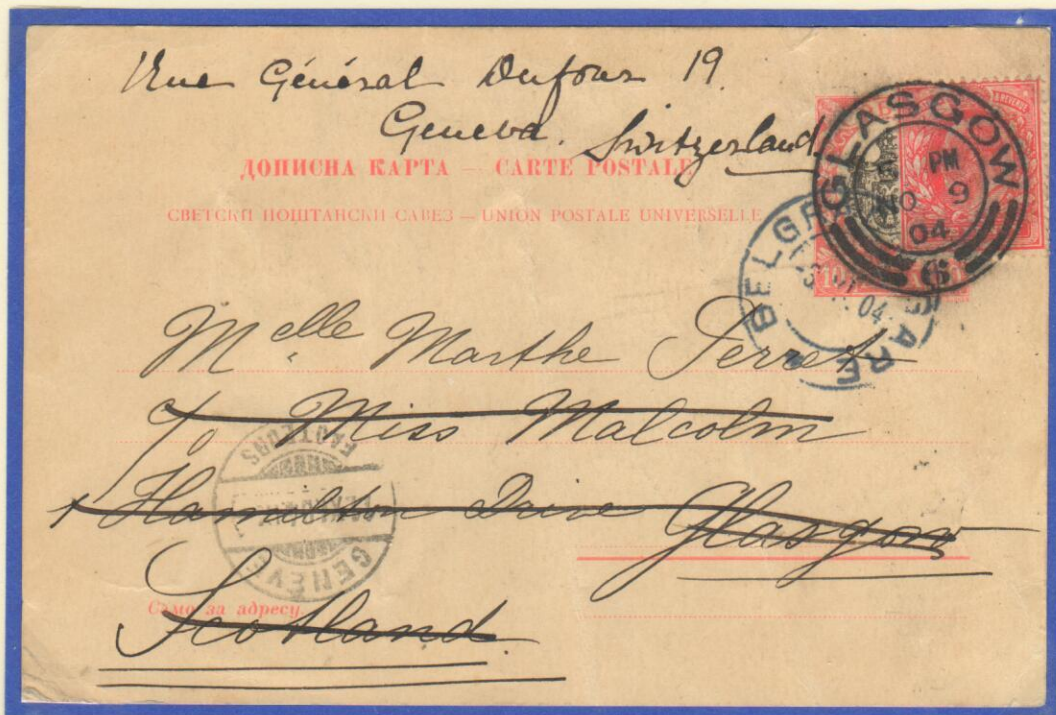 Rue Général Dufour 19.
Geneva. Switzerland
ДОПИСНА КАРТА — CARTE POSTALE
СВЕТСКИ ПОШТАНСКИ САВЕЗ — UNION POSTALE UNIVERSELLE
GLASGOW
PM
NO 9
04
6
10
BELGRADE GARE
04
Melle Marthe Perret
c/o Miss Malcolm
Hamilton Drive Glasgow
Scotland
FACTEURS
GENÈVE
Само за адресу.